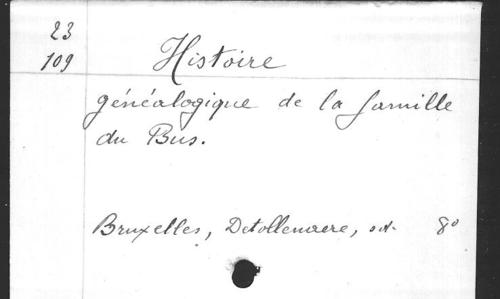 23
109
Histoire
généalogique de la famille
du Bus.
Bruxelles, Detollenaere, sd. 8°